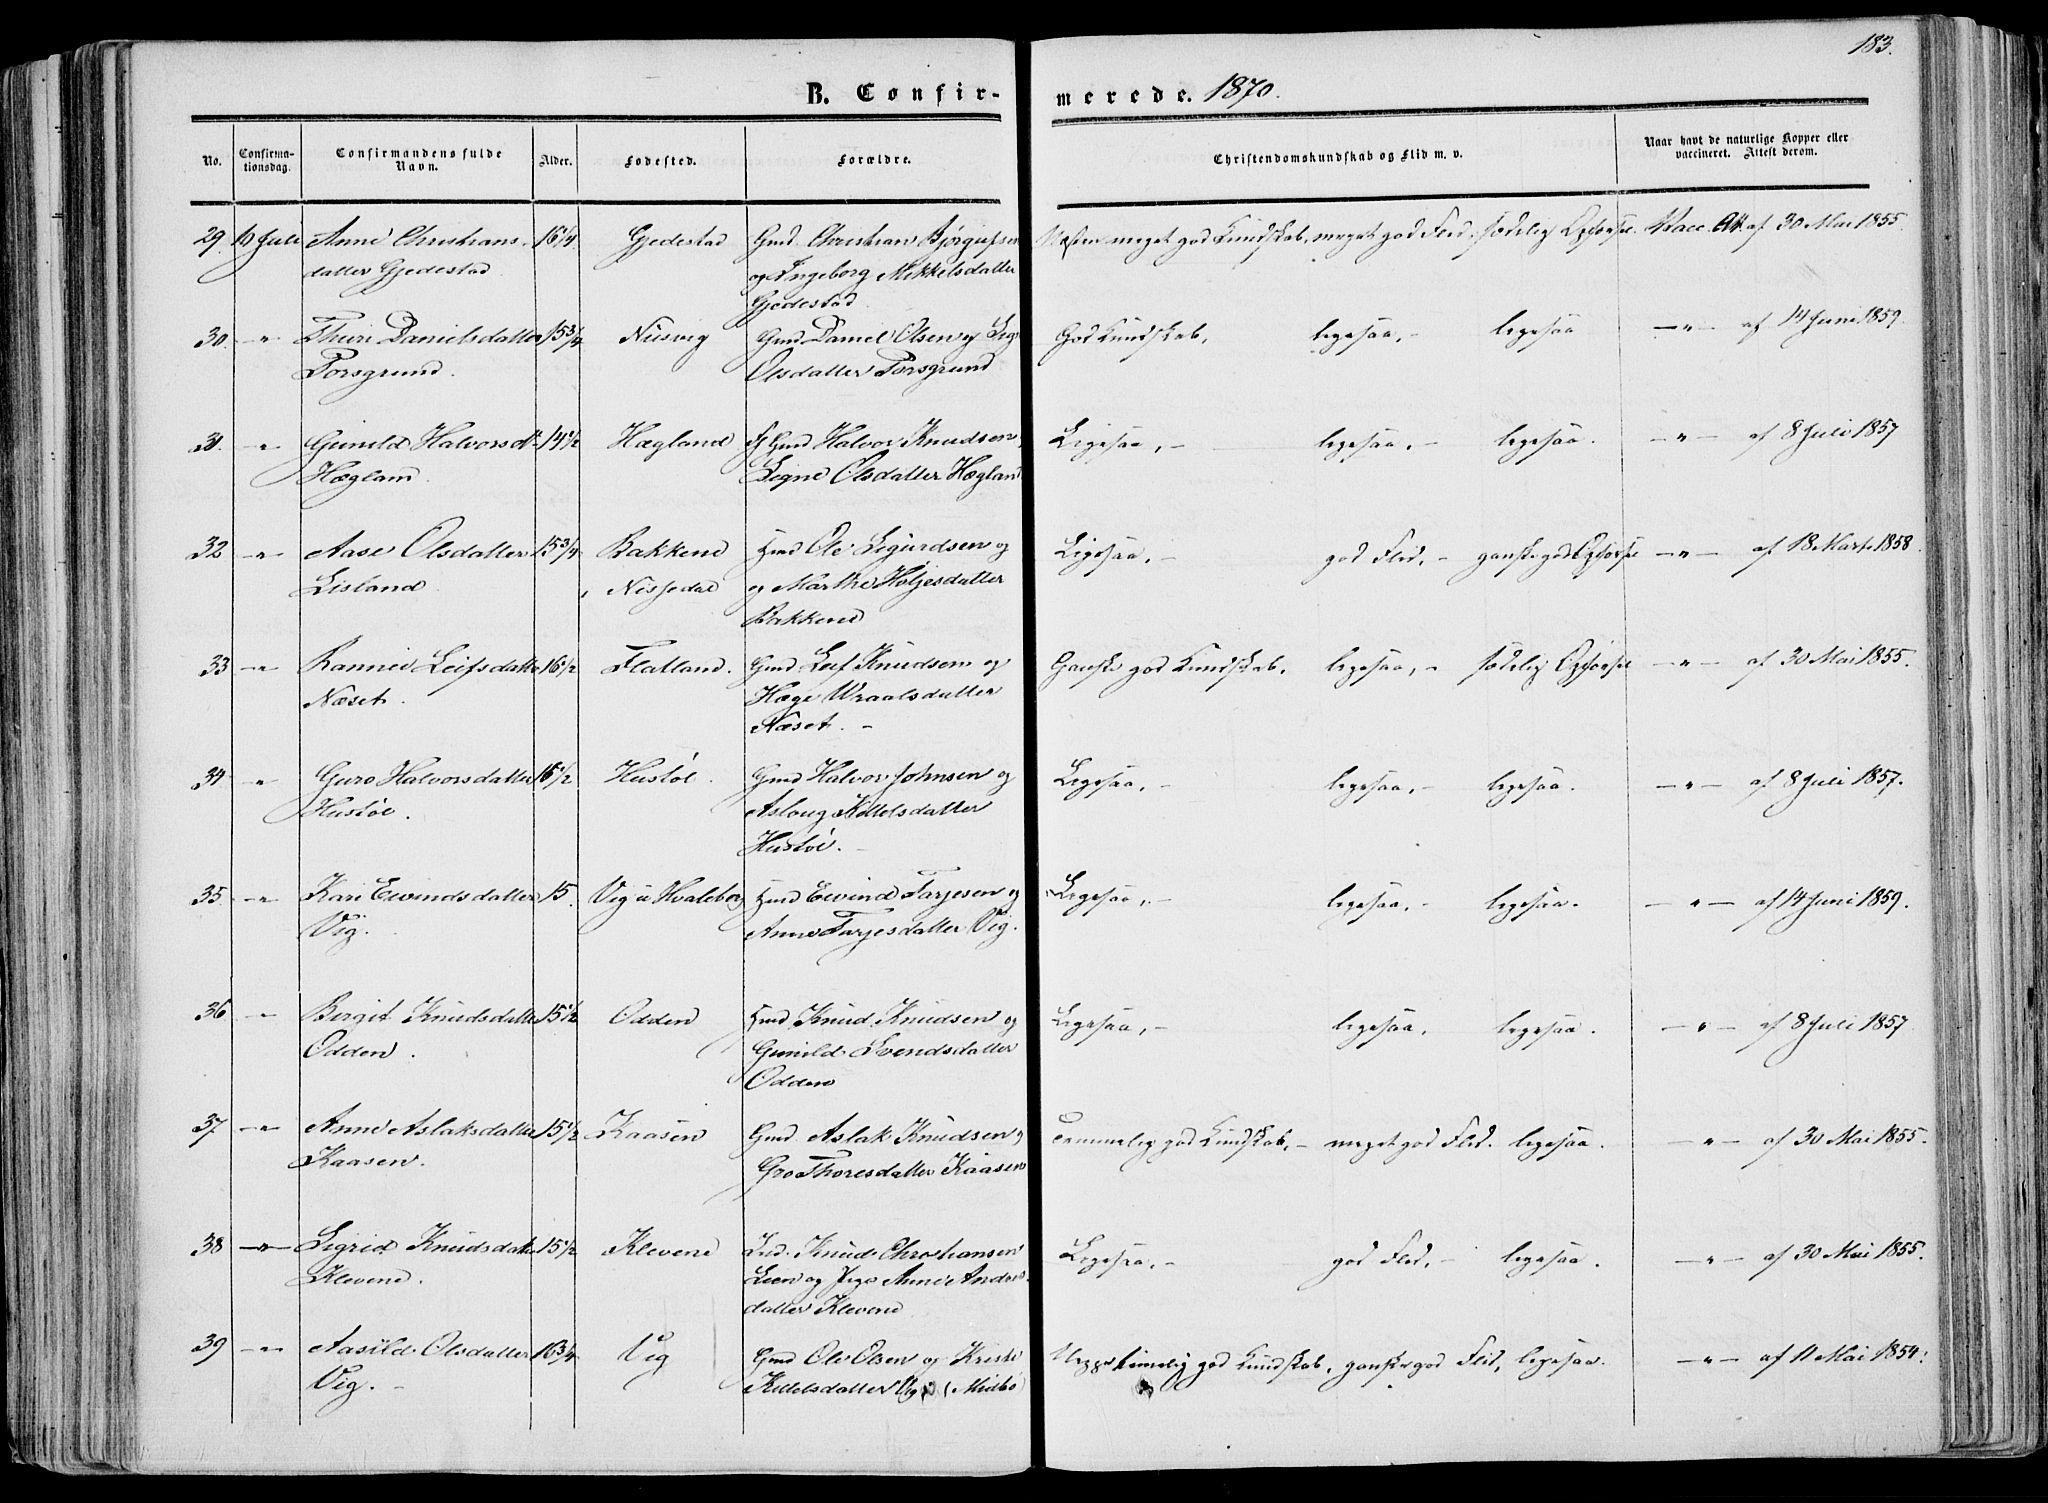 183.
B. Confir- merede. 1870.
No. Confirma-tionsdag. Confirmandens fulde Navn. Alder. Fødested. Forældre. Christendomskundskab og Flid m. v. Naar havt de naturlige Kopper eller vaccineret. Attest derom.
29. 10 Juli Anne Christians- 16 1/4 Gjedestad Gmd. Christian Bjørgufsen Næsten meget god Kundskab, meget god Flid, sædelig Opførsel. Vacc. Att. af 30 Mai 1855.
datter Gjedestad og Ingeborg Mikkelsdatter
Gjedestad
30. -"- Thuri Danielsdatter 15 3/4 Nisvig Gmd Daniel Olsen og Sig. God Kundskab, ligesaa, - ligesaa -"- af 14 Juni 1859.
Porsgrund. Olsdatter Porsgrund
31. -"- Gunild Halvorsdtr 14 1/2 Hægland Gmd Halvor Knudsen, Ligesaa, - ligesaa, - ligesaa. -"- af 8 Juli 1857
Hægland. Signe Olsdatter Hægland
32 -"- Aase Olsdatter 15 3/4 Bakkene Hmd Ole Sigurdsen og Ligesaa, - god Flid, - ganske god Opførsel -"- af 18 Marts 1858.
Lisland Nissedal og Marthe Høljesdatter
Bakkene
33 -"- Rannei Leifsdatter 16 1/2 Flatland. Gmd Leif Knudsen og Ganske god Kundskab, ligesaa, - sædelig Opførsel -"- af 30 Mai 1855.
Næset. Hæge Wraalsdatter
Næset. -
34 -"- Guro Halvorsdatter 15 1/2 Hustøl. Gmd Halvor Johnsen og Ligesaa, - ligesaa, - ligesaa. -"- af 8 Juli 1857.
Hustøl. Asloug Kittelsdatter
Hustøl. -
35 -"- Kari Eivindsdatter 15. Vig u Hvalebog Hmd Eivind Tarjesen og Ligesaa, - ligesaa, - ligesaa. -"- af 14 Juni 1859.
Vig. Anne Tarjesdatter Vig.
36 -"- Bergit Knudsdatter 15 1/2 Odden Hmd Knud Knudsen og Ligesaa, - ligesaa, ligesaa. -"- af 8 Juli 1857
Odden. Gunild Svendsdatter
Odden
37 -"- Anne Aslaksdatter 15 1/2 Kaasen Gmd. Aslak Knudsen og Temmelig god Kundskab, - meget god Flid. ligesaa. -"- af 30 Mai 1855.
Kaasen. Gro Thoresdatter Kaasen
38 -"- Sigrid Knudsdatter 15 1/2 Klevene Knud Christiansen Ligesaa, - god Flid, - ligesaa. -"- af 30 Mai 1855.
Klevene. Lien og Pige Anne Anders-
datter Klevene
39 -"- Aasild Olsdatter 16 3/4 Vig Gmd Ole Olsen og Kristi Neppe timelig god Kundskab, ganske god Flid, ligesaa. -"- af 11 Mai 1854.
Vig. - Kittelsdatter Vig (Midbø)